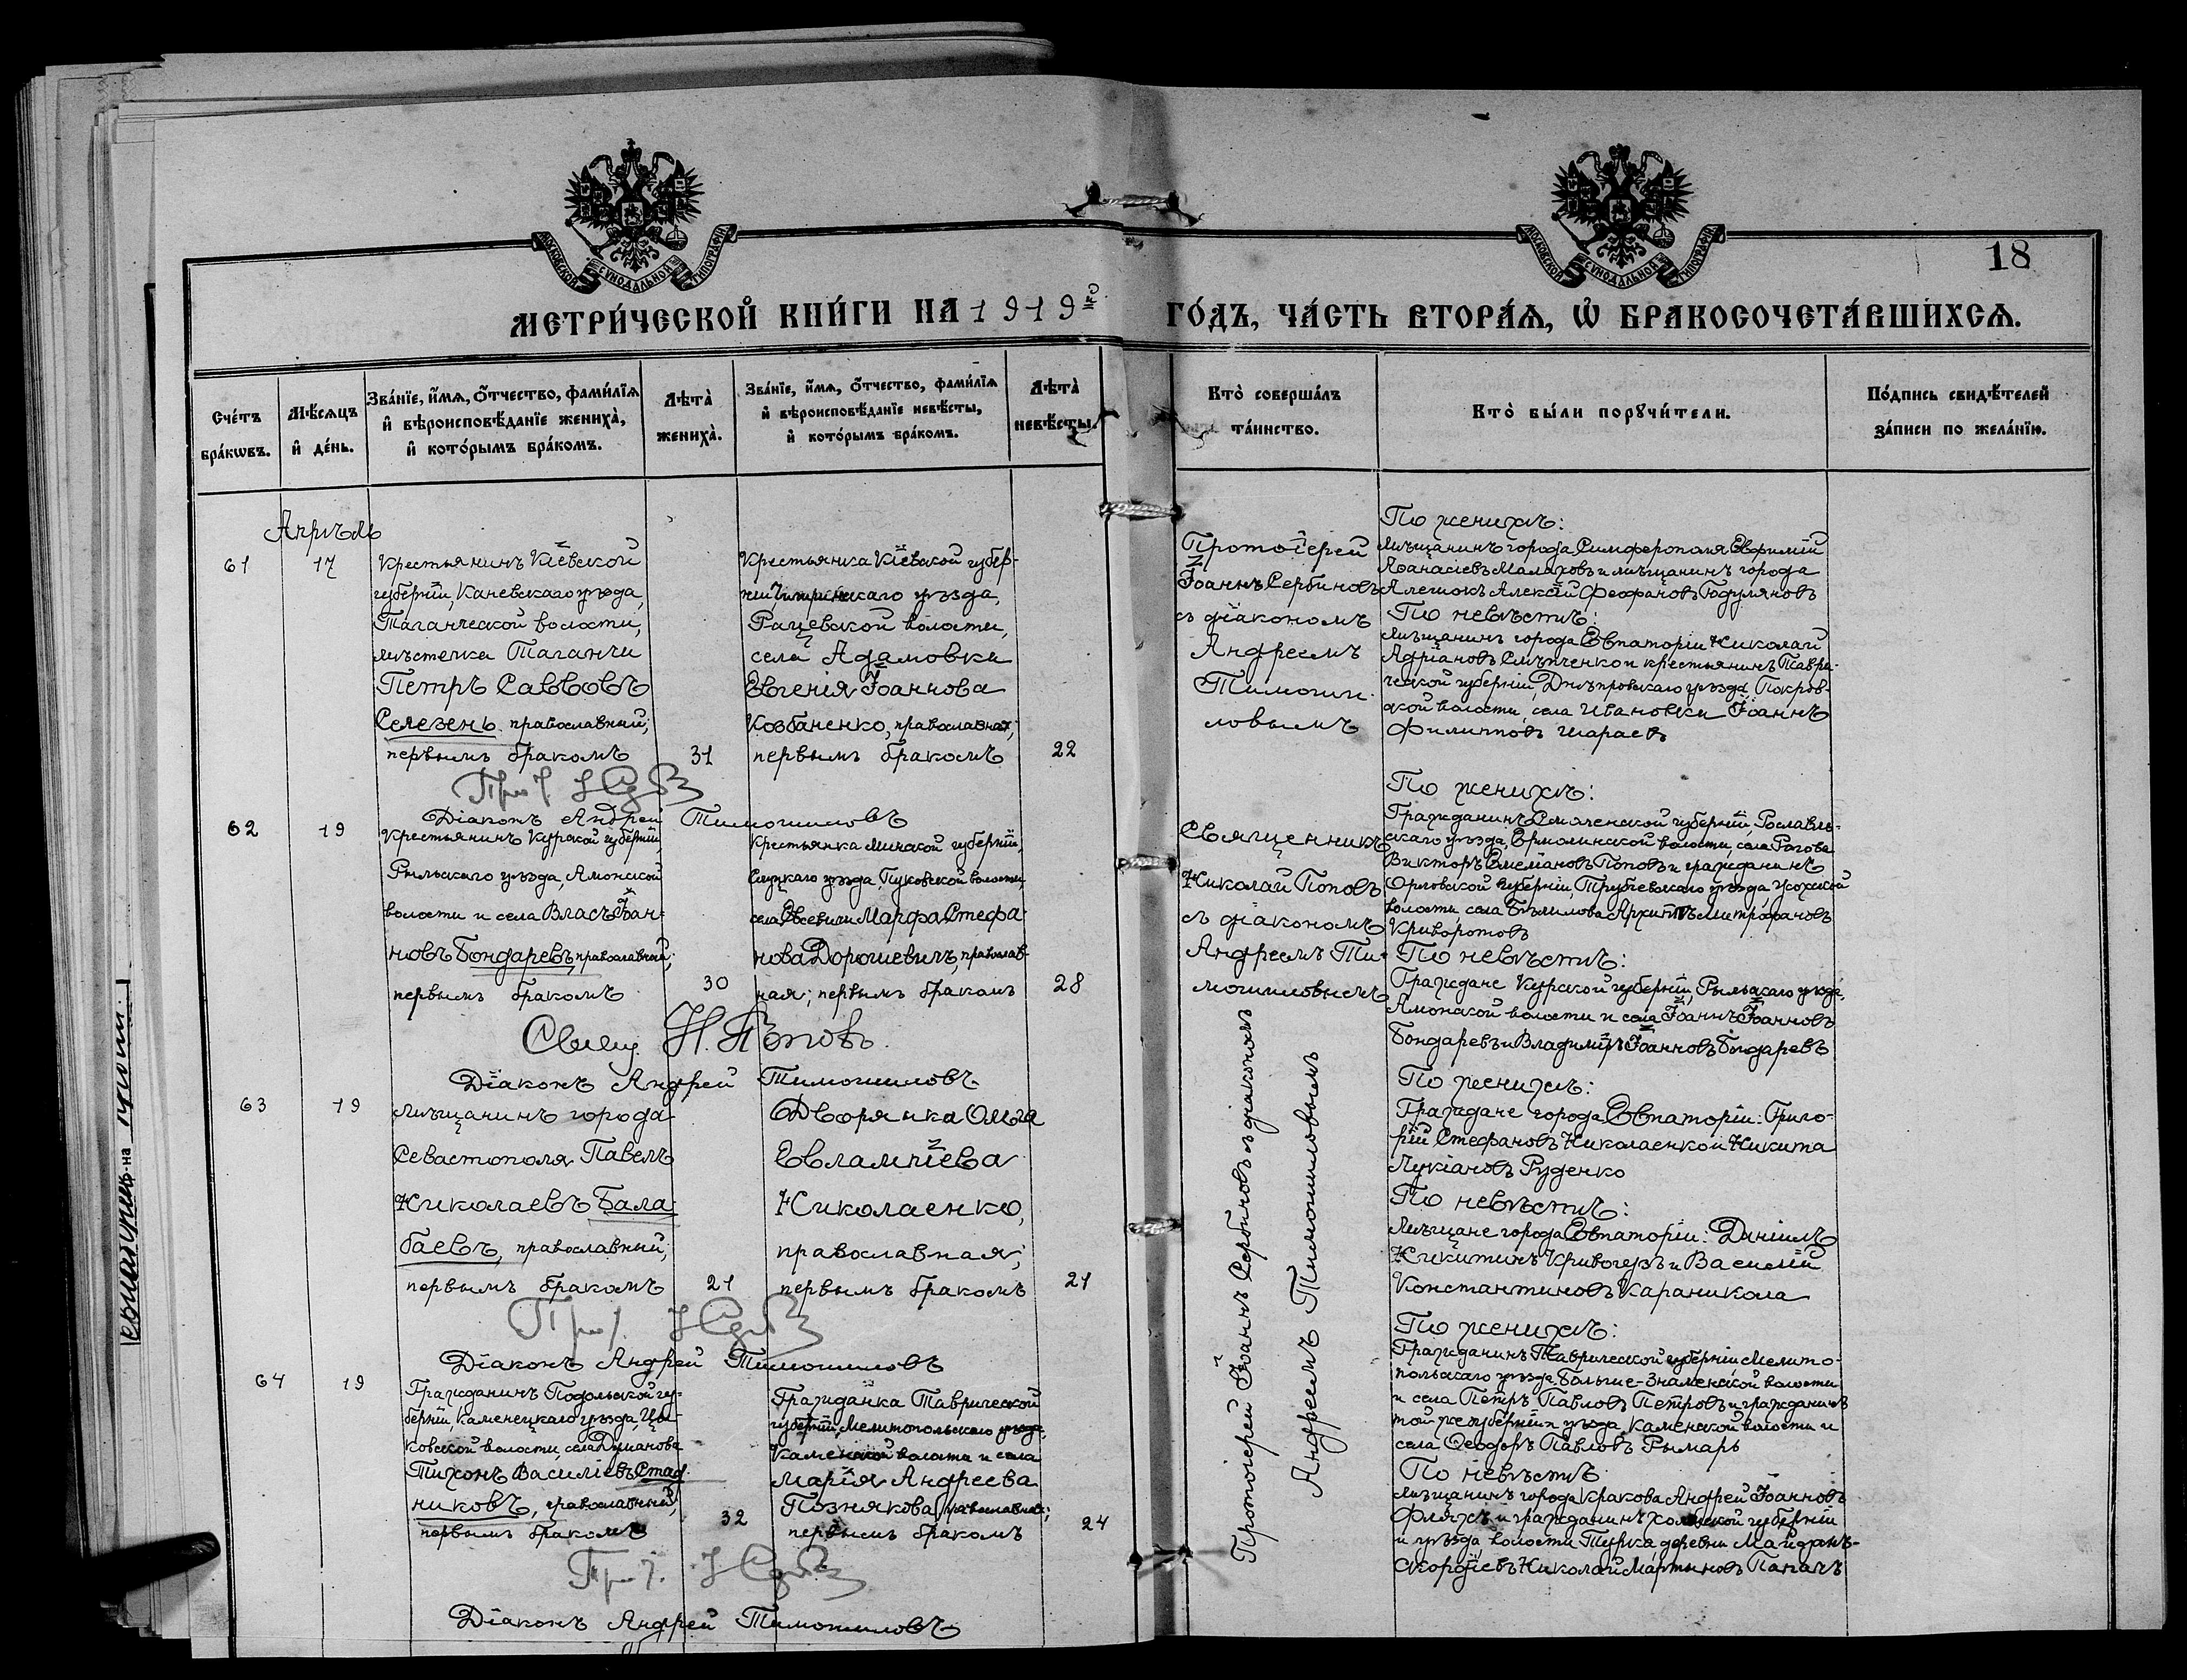 МОСКОВСКОЙ СѴНОДАЛЬНОЙ ТИПОГРАФІИ
МОСКОВСКОЙ СѴНОДАЛЬНОЙ ТИПОГРАФІИ
18
МЕТРИ́ЧЕСКОЙ КНИ́ГИ НА 1919й ГО́ДЪ, ЧА́СТЬ ВТОРА́Ѧ, Ѡ҆ БРАКОСОЧЕТА́ВШИХСѦ.
Сче́тъ бра́кѡвъ.
Мѣ́сѧцъ и҆ де́нь.
Зва́нїе, и҆́мѧ, ѻ҆́тчество, фами́лїѧ
и҆ вѣроисповѣ́данїе жениха̀,
и҆ кото́рымъ бра́комъ.
Лѣта̀ жениха̀.
Зва́нїе, и҆́мѧ, ѻ҆́тчество, фами́лїѧ
и҆ вѣроисповѣ́данїе невѣ́сты,
и҆ кото́рымъ бра́комъ.
Лѣта̀ невѣ́сты.
Кто̀ соверша́лъ
та́инство.
Кто̀ бы́ли порꙋчи́тели.
По́дпись свидѣ́телей
за́писи по жела́нїю.
Апрѣль
61
17
Крестьянинъ Кіевской
губерніи, Каневскаго уѣзда,
Таганчской волости,
мѣстечка Таганчи
Петръ Савовъ
Селезень православный;
первымъ бракомъ
31
Крестьянка Кіевской губер-
ніи, уѣзда,
Рацевской волости,
села Адамовки
Евгенія Іоаннова
Козбаненко, православная;
первымъ бракомъ
22
Протоіерей
Іоаннъ Сербиновъ
съ діакономъ
Андреемъ
Тимоши-
ловымъ
По женихѣ:
мѣщанинъ города Симферополя Евфимій
Аѳанасіевъ Малаховъ и мѣщанинъ города
Алешокъ Алексій Феофановъ Гюдуляновъ
По невѣстѣ:
мѣщанинъ города Евпаторіи Николай
Адріановъ и крестьянинъ Таври-
ческой губерніи, Днѣпровскаго уѣзда, Покров-
ской волости, села Ивановки Іоаннъ
Филипповъ Шараевъ
Діаконъ Андрей Тимошиловъ
62
19
Крестьянинъ Курской губерніи,
Рыльскаго уѣзда, Амонской
волости и села Власъ Іоан-
новъ Бондаревъ, православный;
первымъ бракомъ
30
Крестьянка Минской губерніи,
Слуцкаго уѣзда, Пуковской волости,
села Евсевичи Марфа Стефа-
нова Дорошевичъ, православ-
ная; первымъ бракомъ
28
Священникъ
Николай Поповъ
съ діакономъ
Андреемъ Ти-
мошиловымъ
По женихѣ:
Гражданинъ Смоленской губерніи, Рославль-
скаго уѣзда, Ермолинской волости, села Рогова
Викторъ Емеліановъ Поповъ и гражданинъ
Орловской губерніи, Трубчевскаго уѣзда, Усожской
волости, села Архиппъ Митрофановъ
Криворотовъ
По невѣстѣ:
Граждане Курской губерніи, Рыльскаго уѣзда,
Амонской волости и села Іоаннъ Іоанновъ
Бондаревъ и Владиміръ Іоанновъ Бондаревъ
Свящ. Н. Поповъ.
Діаконъ Андрей Тимошиловъ
63
19
Мѣщанинъ города
Севастополя Павелъ
Николаевъ Бала-
баевъ, православный;
первымъ бракомъ
21
Дворянка Ольга
Евлампіева
Николаенко,
православная;
первымъ бракомъ
21
Протоіерей Іоаннъ Сербиновъ съ діакономъ
Андреемъ Тимошиловымъ
По женихѣ:
Граждане города Евпаторіи: Григо-
рій Стефановъ Николаенко и Никита
Лукіановъ Руденко
По невѣстѣ:
Мѣщане города Евпаторіи: Даніилъ
Никитинъ и Василій
Константиновъ Караникола
Діаконъ Андрей Тимошиловъ
64
19
Гражданинъ Подольской гу-
берніи, Каменецкаго уѣзда, Цы-
ковской волости, села Думанова
Тихонъ Василіевъ Стад-
никовъ, православный;
первымъ бракомъ
32
Гражданка Таврической
губерніи, Мелитопольскаго уѣзда,
Каменской волости и села
Марія Андреева
Познякова, православная;
первымъ бракомъ
24
По женихѣ:
Гражданинъ Таврической губерніи Мелито-
польскаго уѣзда, Больше-Знаменской волости
и села Петръ Павловъ Петровъ и гражданинъ
той же губерніи и уѣзда, Каменской волости и
села Ѳеодоръ Павловъ Рымарь
По невѣстѣ
мѣщанинъ города Кракова Андрей Іоанновъ
и гражданинъ Холмской губерніи
и уѣзда, волости Турка, деревни Майданъ-
Николай Мартыновъ
Діаконъ Андрей Тимошиловъ